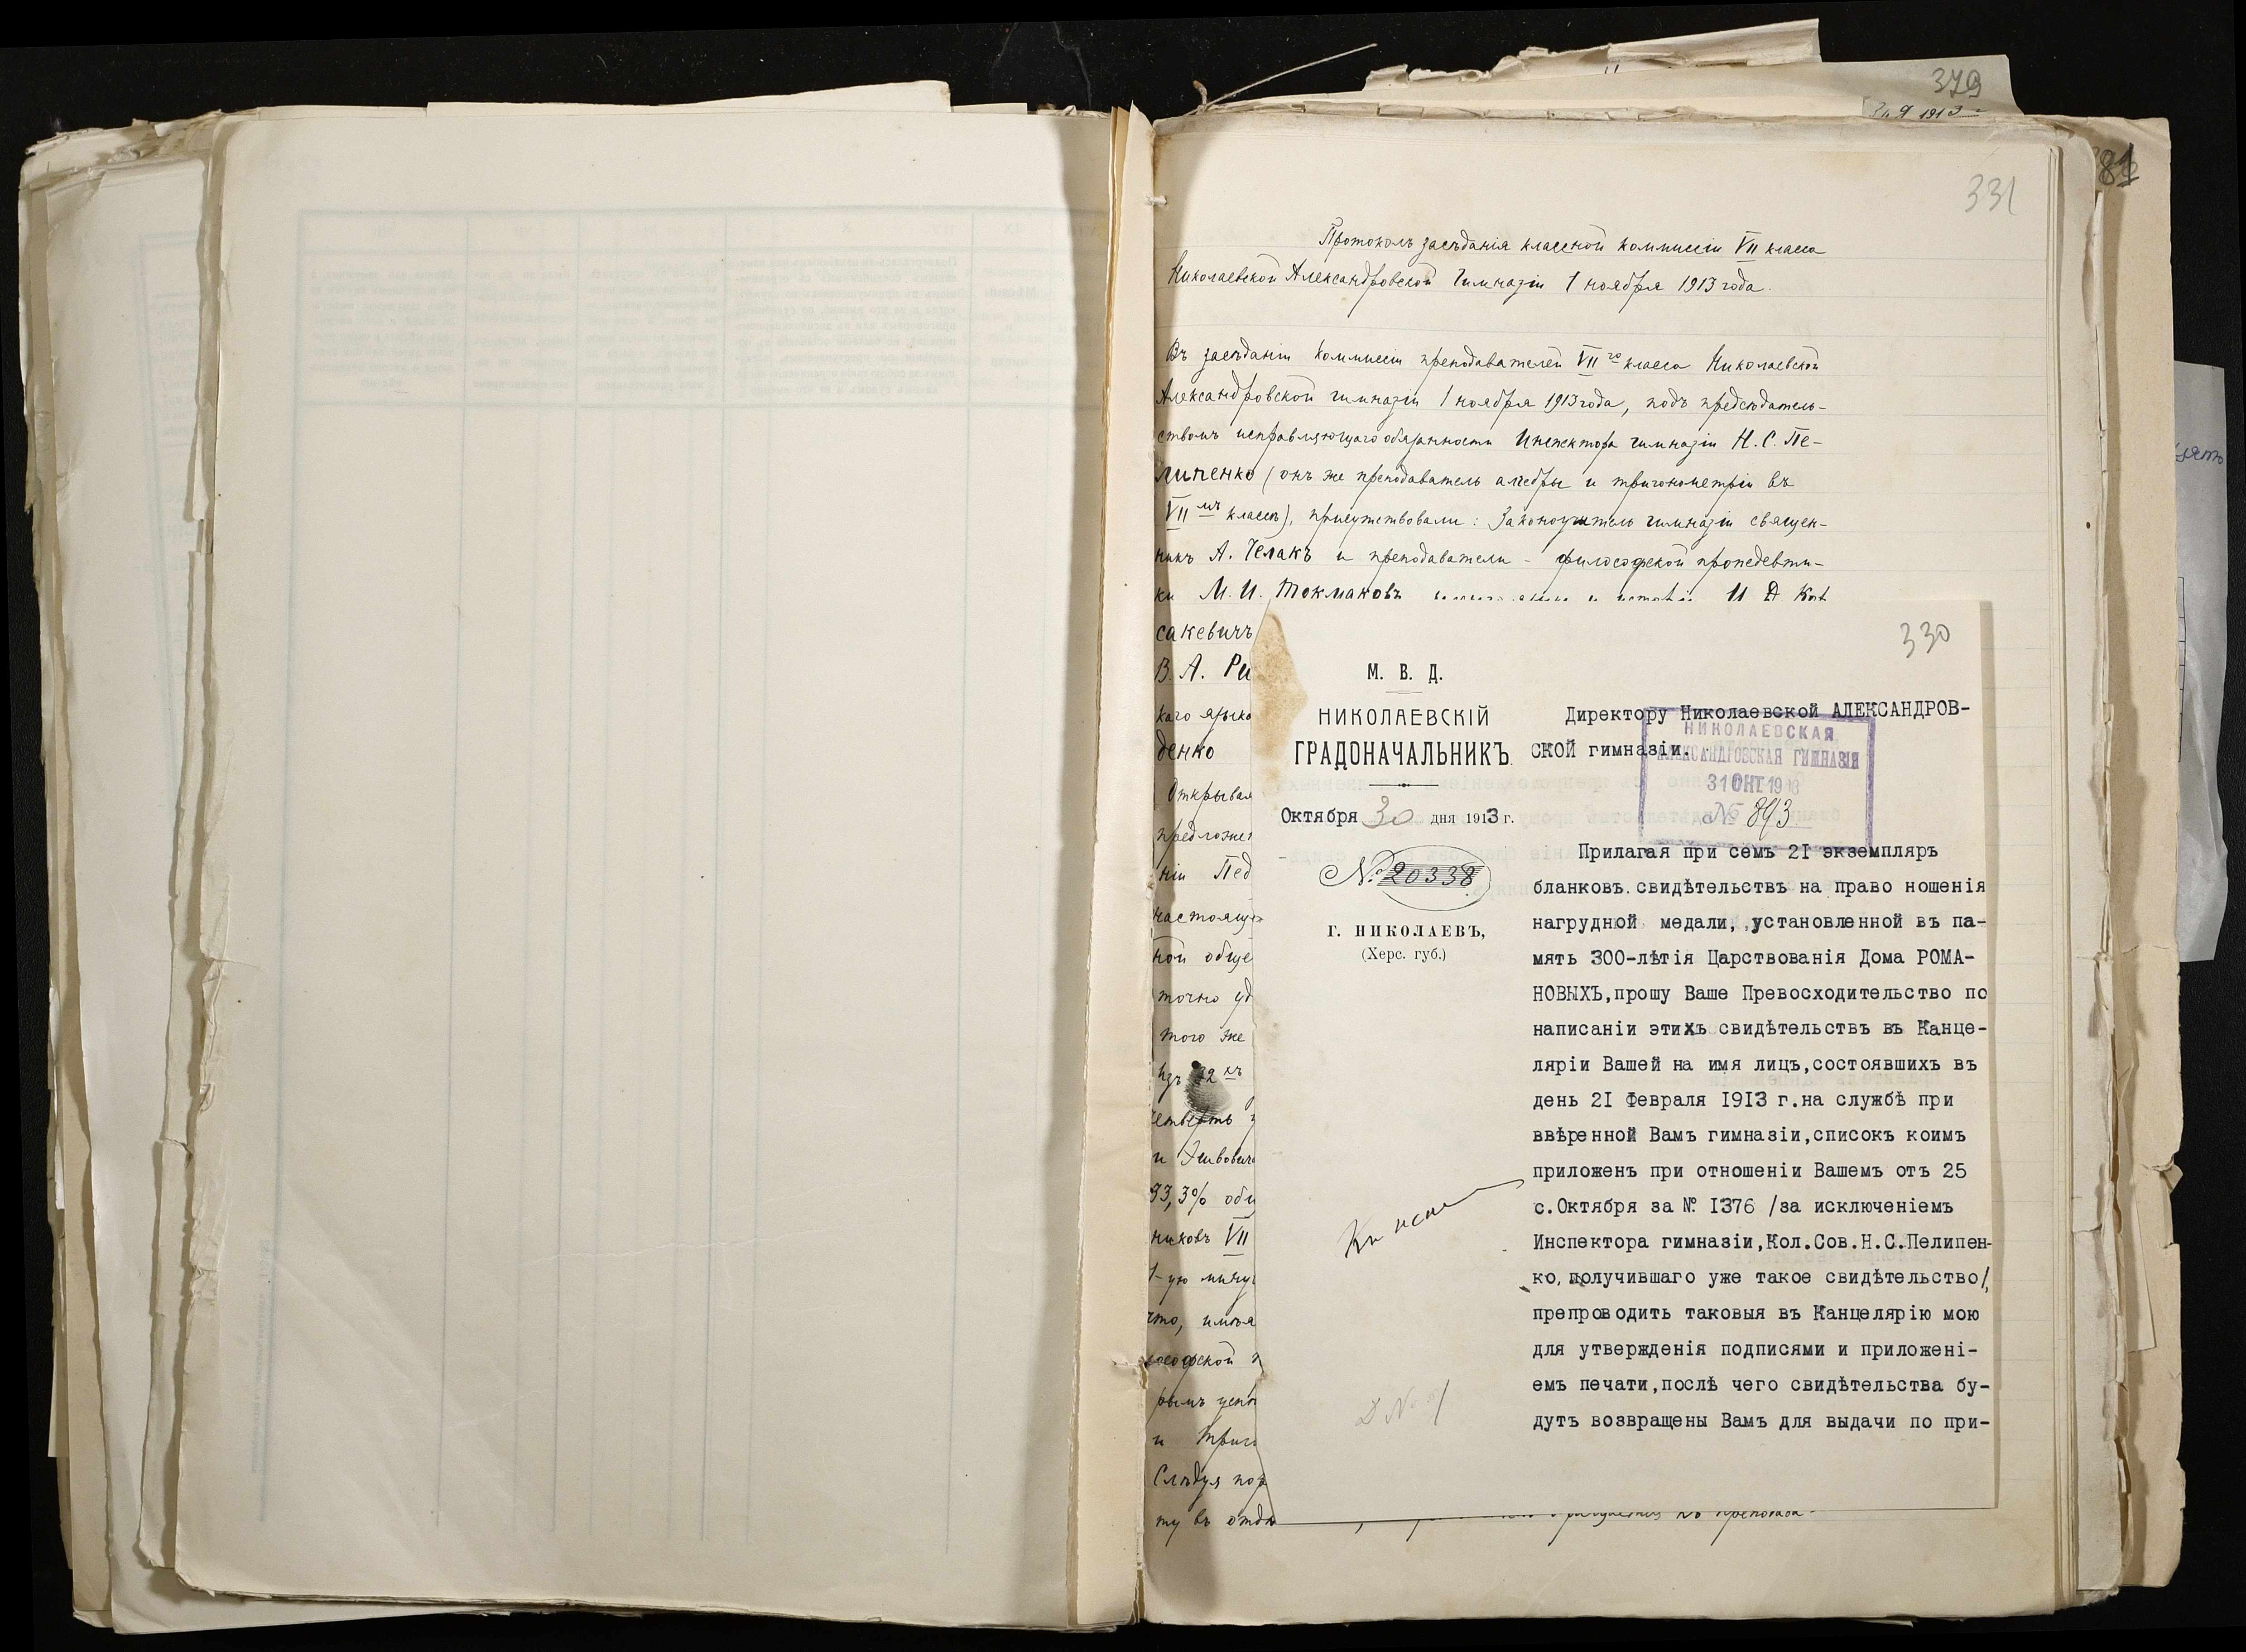 379
1913
81
331
Протоколъ засѣданія классной коммиссіи VII класса
Николаевской Александровской Гимназіи 1 ноября 1913 года.
Въ засѣданіи коммиссіи преподавателей VII го класса Николаевской
Александровской гимназіи 1 ноября 1913 года, подъ предсѣдатель-
ствомъ исправляющаго обязанности Инспектора гимназіи Н. С. Пе-
липенко (онъ же преподаватель алгебры и тригонометріи въ
VII мъ классѣ), присутствовали: Законоучитель гимназіи священ-
никъ А. Чепакъ и преподаватели - философской пропедевти-
ки М. И. Токмаковъ
сакевичъ
В. А. Ри
каго языка
денко
Открывая
предложе
ніи Пед
настояще
ной обще
точно уд
того же
Изъ 32 хъ
четверть
93,3% общ
никовъ VII
1-ую
что, имѣя
лософской п
рымъ успѣ
и триго
Слѣдуя пор
ту въ отдѣ
330
М. В. Д.
НИКОЛАЕВСКІЙ
ГРАДОНАЧАЛЬНИКЪ.
Октября 30 дня 1913 г.
№ 20338
Г. НИКОЛАЕВЪ,
(Херс. губ.)
Директору Николаевской АЛЕКСАНДРОВ-
СКОЙ гимназіи.
НИКОЛАЕВСКАЯ
АЛЕКСАНДРОВСКАЯ ГИМНАЗІЯ
31 ОКТ. 1913
№ 893
Прилагая при семъ 2I экземпляръ
бланковъ свидѣтельствъ на право ношенія
нагрудной медали, установленной въ па-
мять 300-лѣтія Царствованія Дома РОМА-
НОВЫХЪ,прошу Ваше Превосходительство по
написаніи этихъ свидѣтельствъ въ Канце-
ляріи Вашей на имя лицъ,состоявшихъ въ
день 2I Февраля I9I3 г.на службѣ при
ввѣренной Вамъ гимназіи,списокъ коимъ
приложенъ при отношеніи Вашемъ отъ 25
с.Октября за № I376 /за исключеніемъ
Инспектора гимназіи,Кол.Сов.Н.С.Пелипен-
ко, получившаго уже такое свидѣтельство/,
препроводить таковыя въ Канцелярію мою
для утвержденія подписями и приложені-
емъ печати,послѣ чего свидѣтельства бу-
дутъ возвращены Вамъ для выдачи по при-